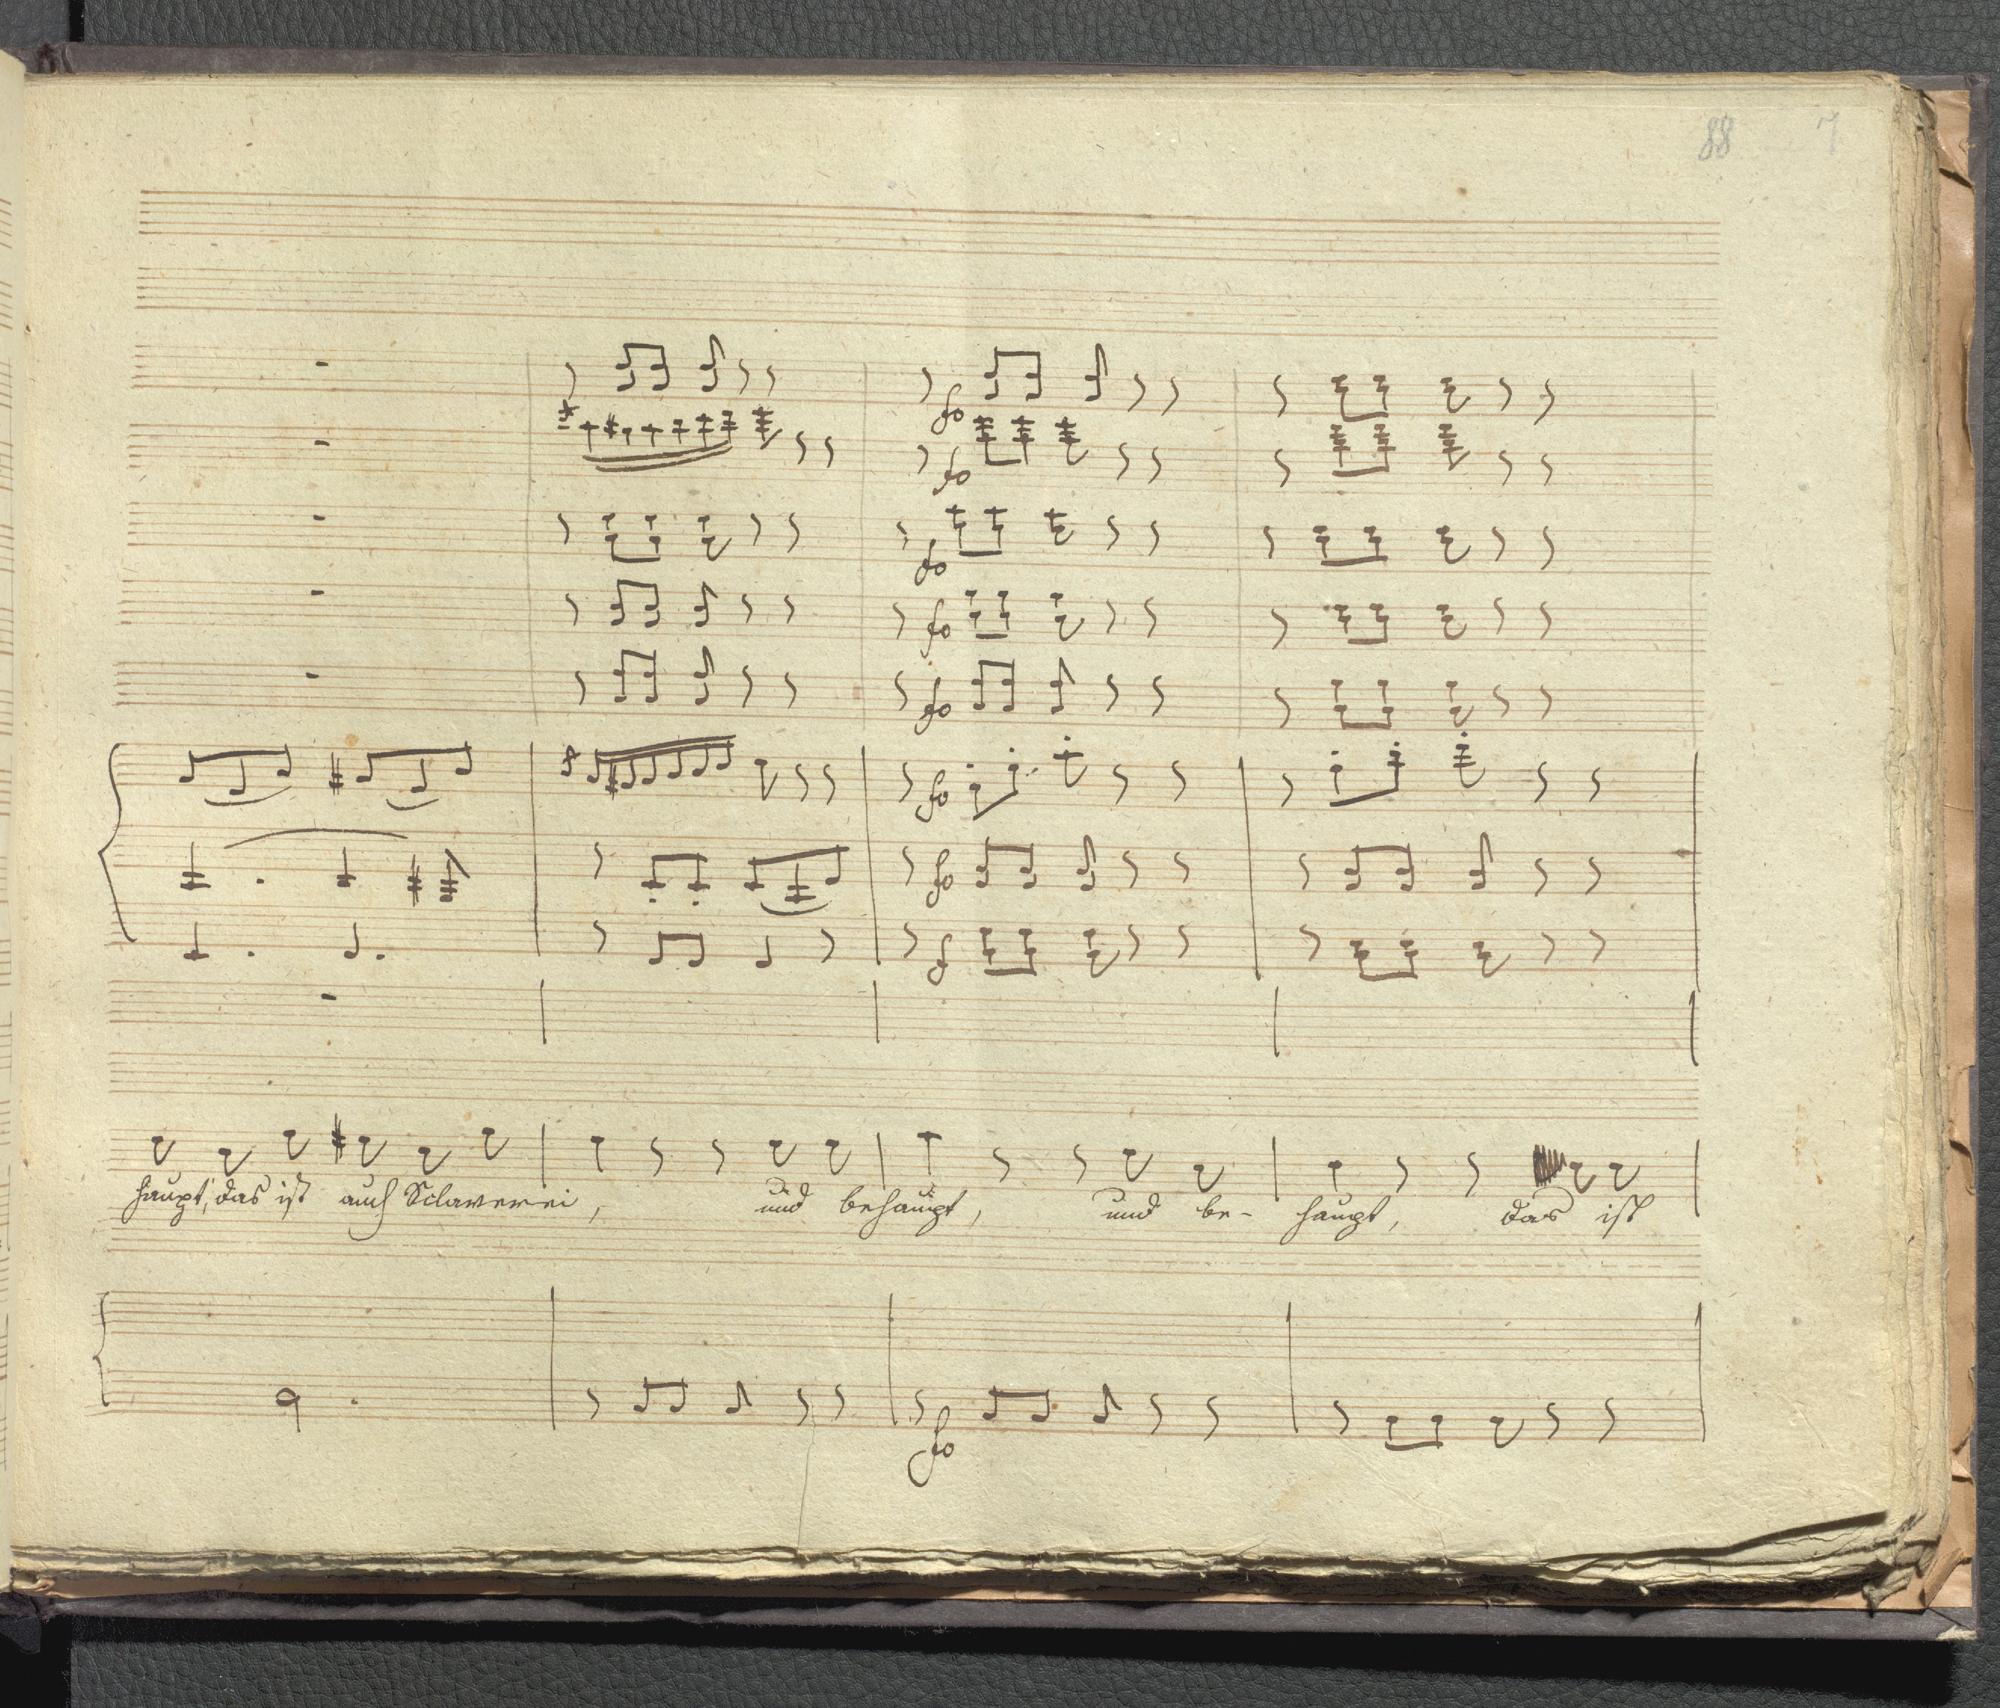 88 7
fo
fo
fo
fo
fo
fo
fo
f
haupt, das ist auch Sclaverei, und behaupt, und be- haupt, das ist
fo